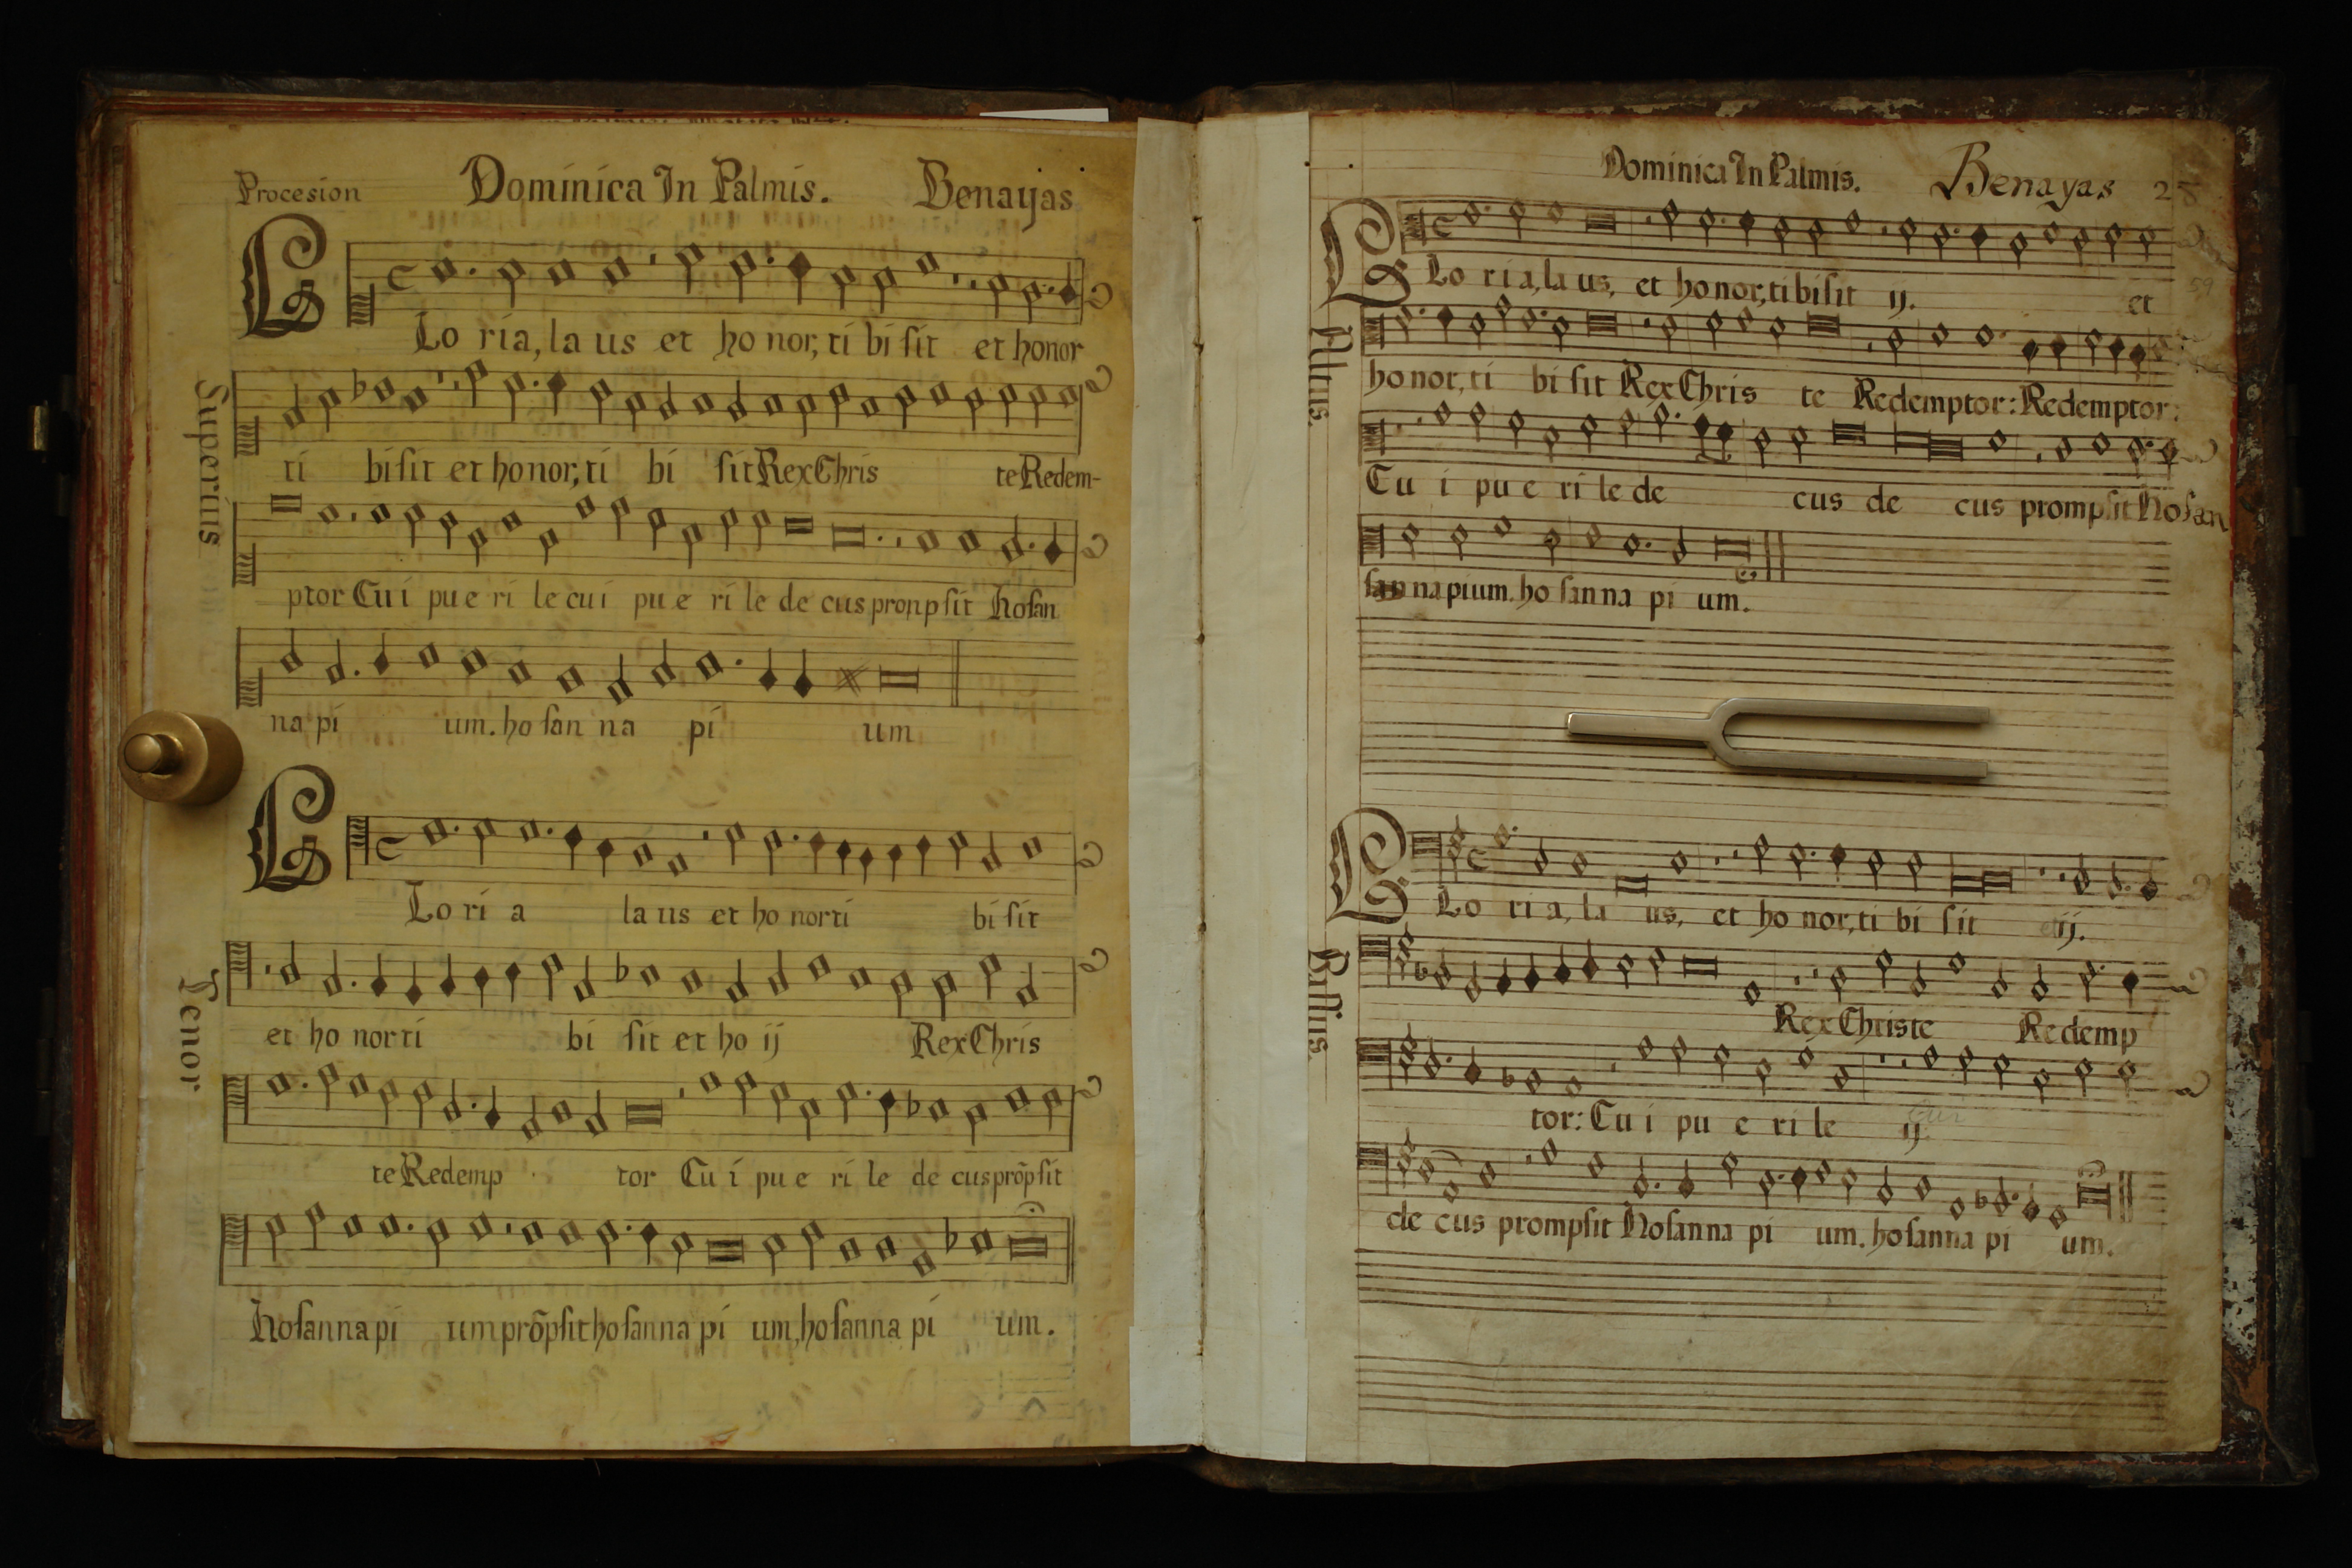 Procesion Dominica In Palmis. Benayas
GLo ria, la us et ho nor, ti bi sit et honor
Superius
ti bi sit et ho nor, ti bi sit Rex Chris te Redem-
ptor Cu i pu e ri le cu i pu e ri le de cus pronpsit hosan
na pi um. ho san na pi um
GLo ri a la us et ho nor ti bi sit
Tenor
et ho nor ti bi sit et ho ij Rex Chris
te Redemp tor Cu i pu e ri le de cus prõpsit
hosanna pi um prõpsit hosanna pi um, hosanna pi um.
Dominica In Palmis. Benayas
GLo ri a, la us, et ho nor, ti bi sit ij. et
59
Altus.
ho nor, ti bi sit Rex Chris te Redemptor: Redemptor:
Cu i pu e ri le de cus de cus prompsit hosan
san na pium. ho san na pi um.
GLo ri a, la us, et ho nor, ti bi sit ij.
Bassus.
Rex Christe Redemp
tor: Cu i pu e ri le ij
de cus prompsit hosanna pi um. hosanna pi um.